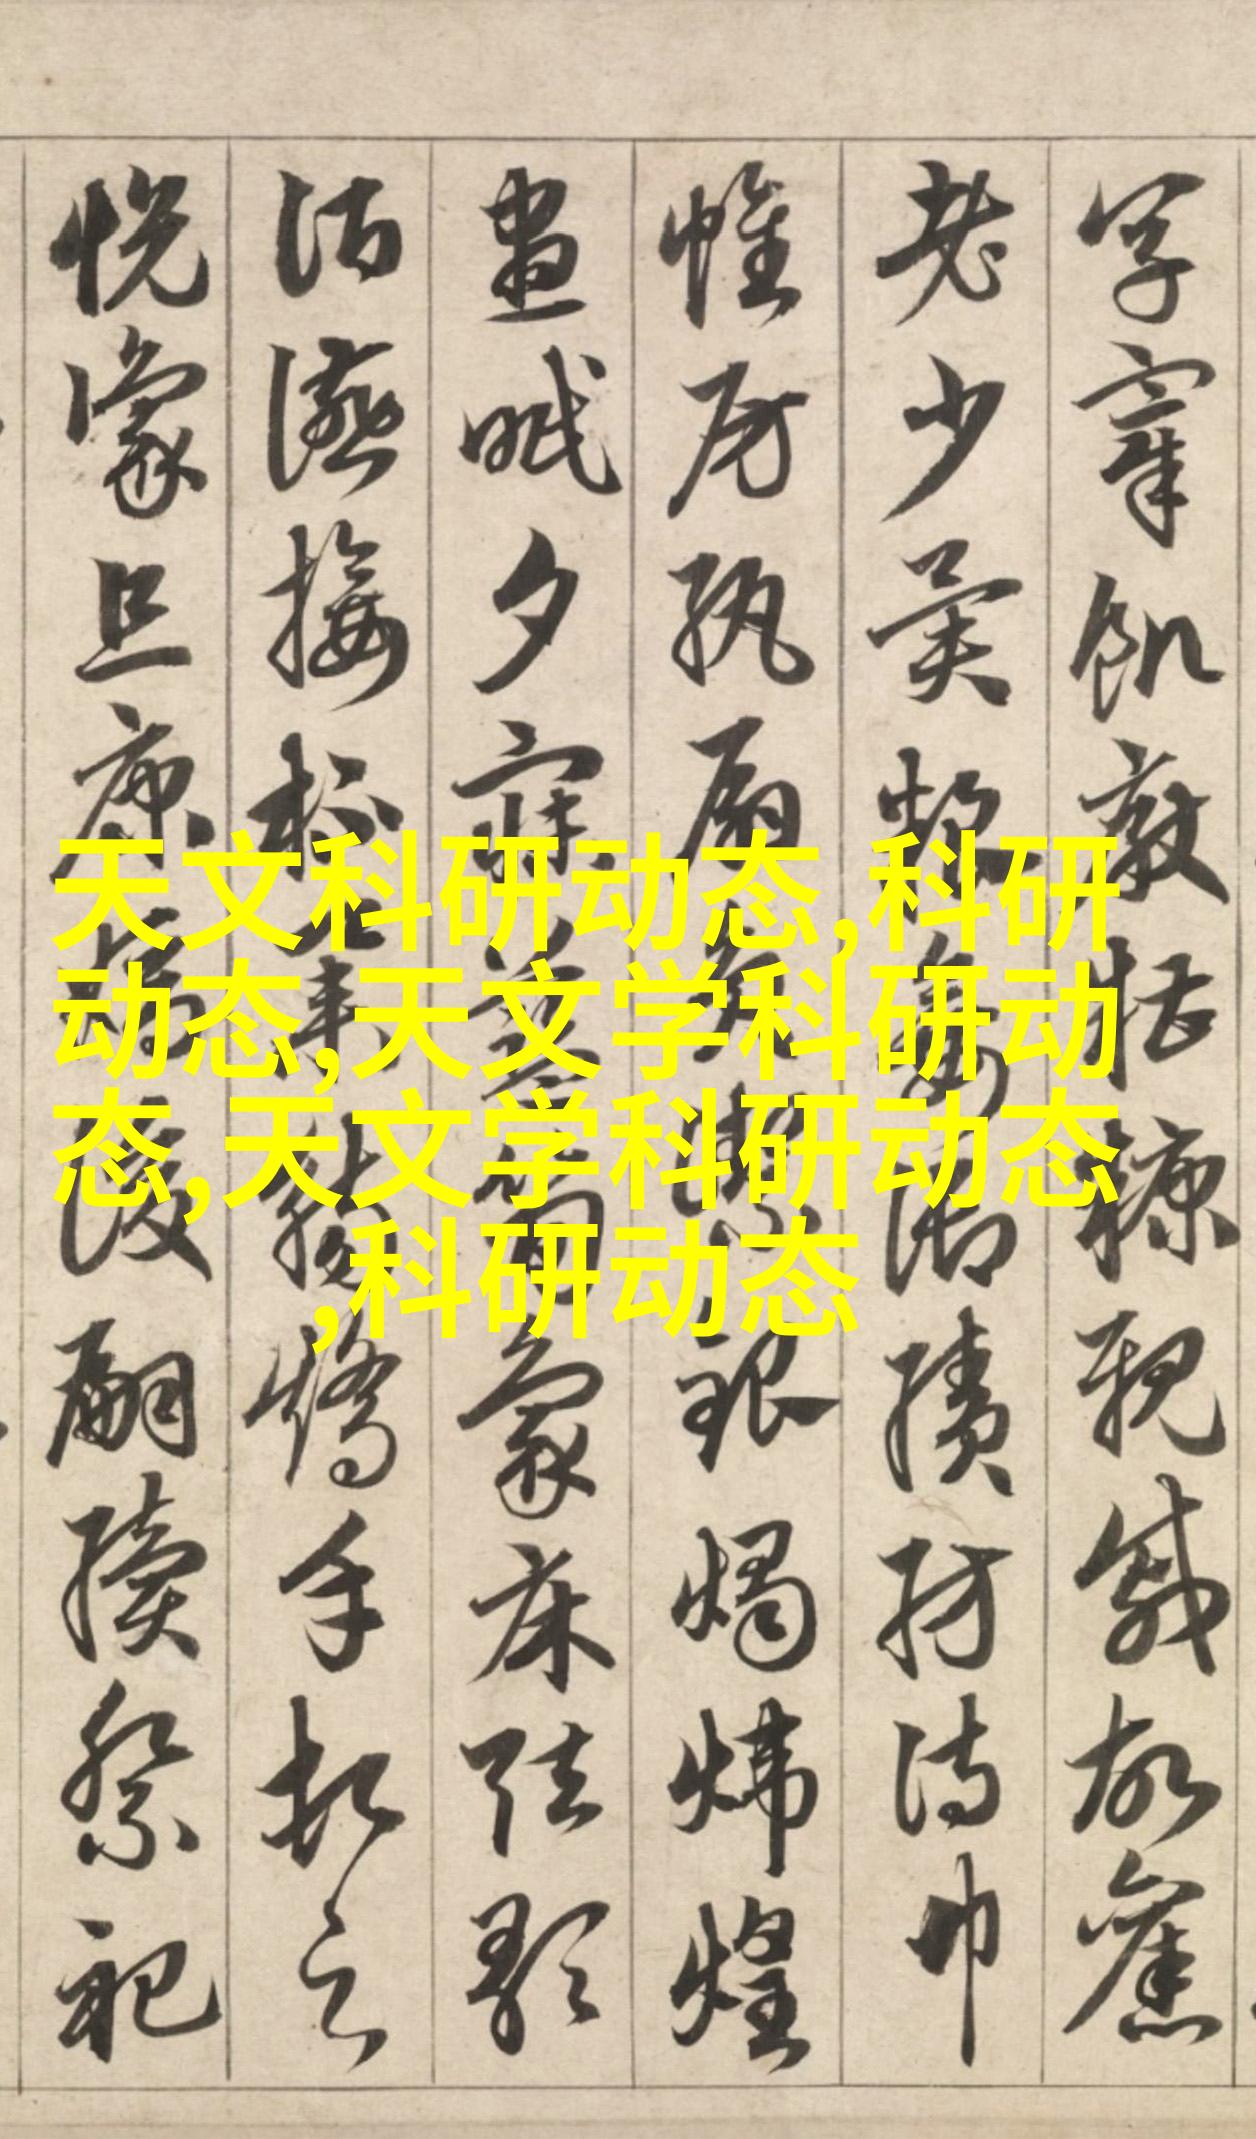 烹宰飢厭糟糠親戚故舊
老少異糧妾御績紡侍巾
帷房紈扇圓潔銀燭煒煌
晝眠夕寐藍筍象床弦歌
酒讌接杯舉觴矯手頓足
悅豫且康嫡後嗣續祭祀
天文科研动态,科研
动态,天文学科研动
态,天文学科研动态
,科研动态